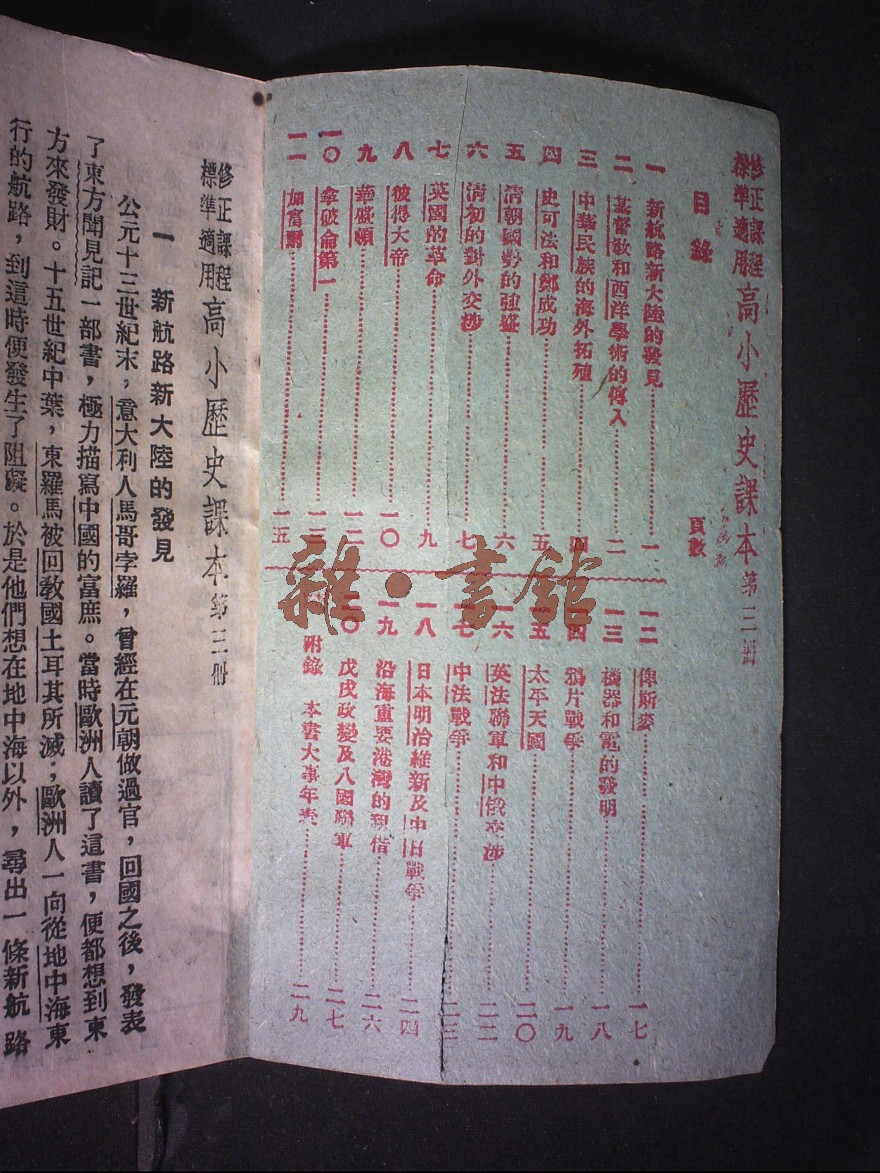 修正課程標準適用 高小歷史課本 第三冊
目錄 頁數
一 新航路新大陸的發見 一
二 基督教和西洋學術的傳入 二
三 中華民族的海外拓殖 四
四 史可法和鄭成功 五
五 清朝國勢的強盛 六
六 清初的對外交涉 七
七 英國的革命 九
八 彼得大帝 一〇
九 華盛頓 一二
一〇 拿破侖第一 一三
一一 加富爾 一五
一二 俾斯麥 一七
一三 機器和電的發明 一八
一四 鴉片戰爭 一九
一五 太平天國 二〇
一六 英法聯軍和中俄交涉 二二
一七 中法戰爭 二三
一八 日本明治維新及中日戰爭 二四
一九 沿海重要港灣的租借 二六
二〇 戊戌政變及八國聯軍 二七
附錄 本書大事年表 二九
雜·書館
修正課程標準適用 高小歷史課本 第三冊
一 新航路新大陸的發見
公元十三世紀末，意大利人馬哥孛羅，曾經在元朝做過官，回國之後，發表
了東方聞見記一部書，極力描寫中國的富庶。當時歐洲人讀了這書，便都想到東
方來發財。十五世紀中葉，東羅馬被回教國土耳其所滅；歐洲人一向從地中海東
行的航路，到這時便發生了阻礙。於是他們想在地中海以外，尋出一條新航路